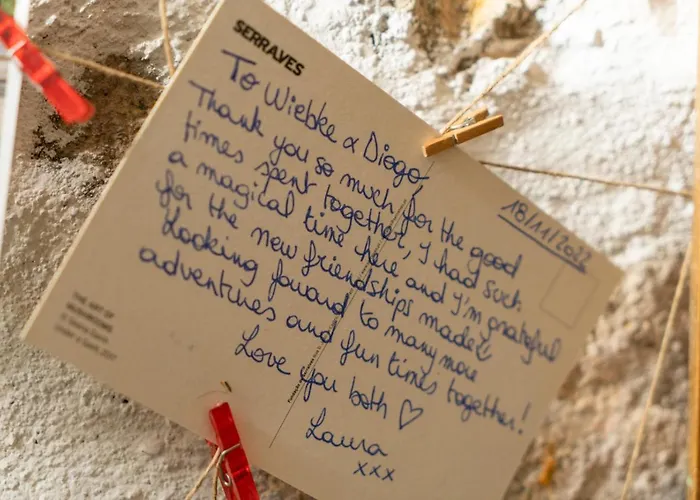 SERRALVES
To Wiebke & Diogo
18/11/2022
Thank you so much for the good
times spent together, I had such
a magical time here and I'm grateful
for the new friendships made
Looking foward to many more
adventures and fun times together!
Love you both ♡
Laura
xxx
THE ART OF